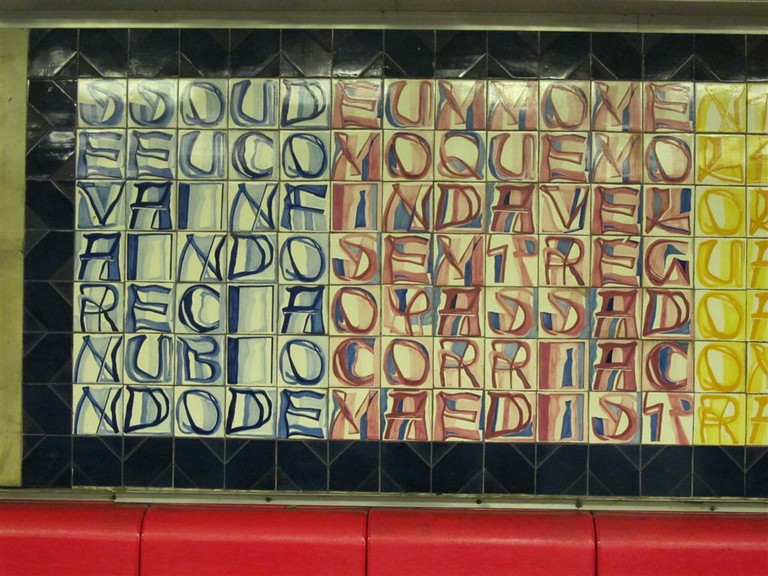 SSOUDEUMMOMEN
EEUCOMOQUEMO
VAINFINDAVELO
AINDOSEMTREGUA
RECIAOPASSADOA
NUBIOCORRIACO
NDODEMAEDISTRA